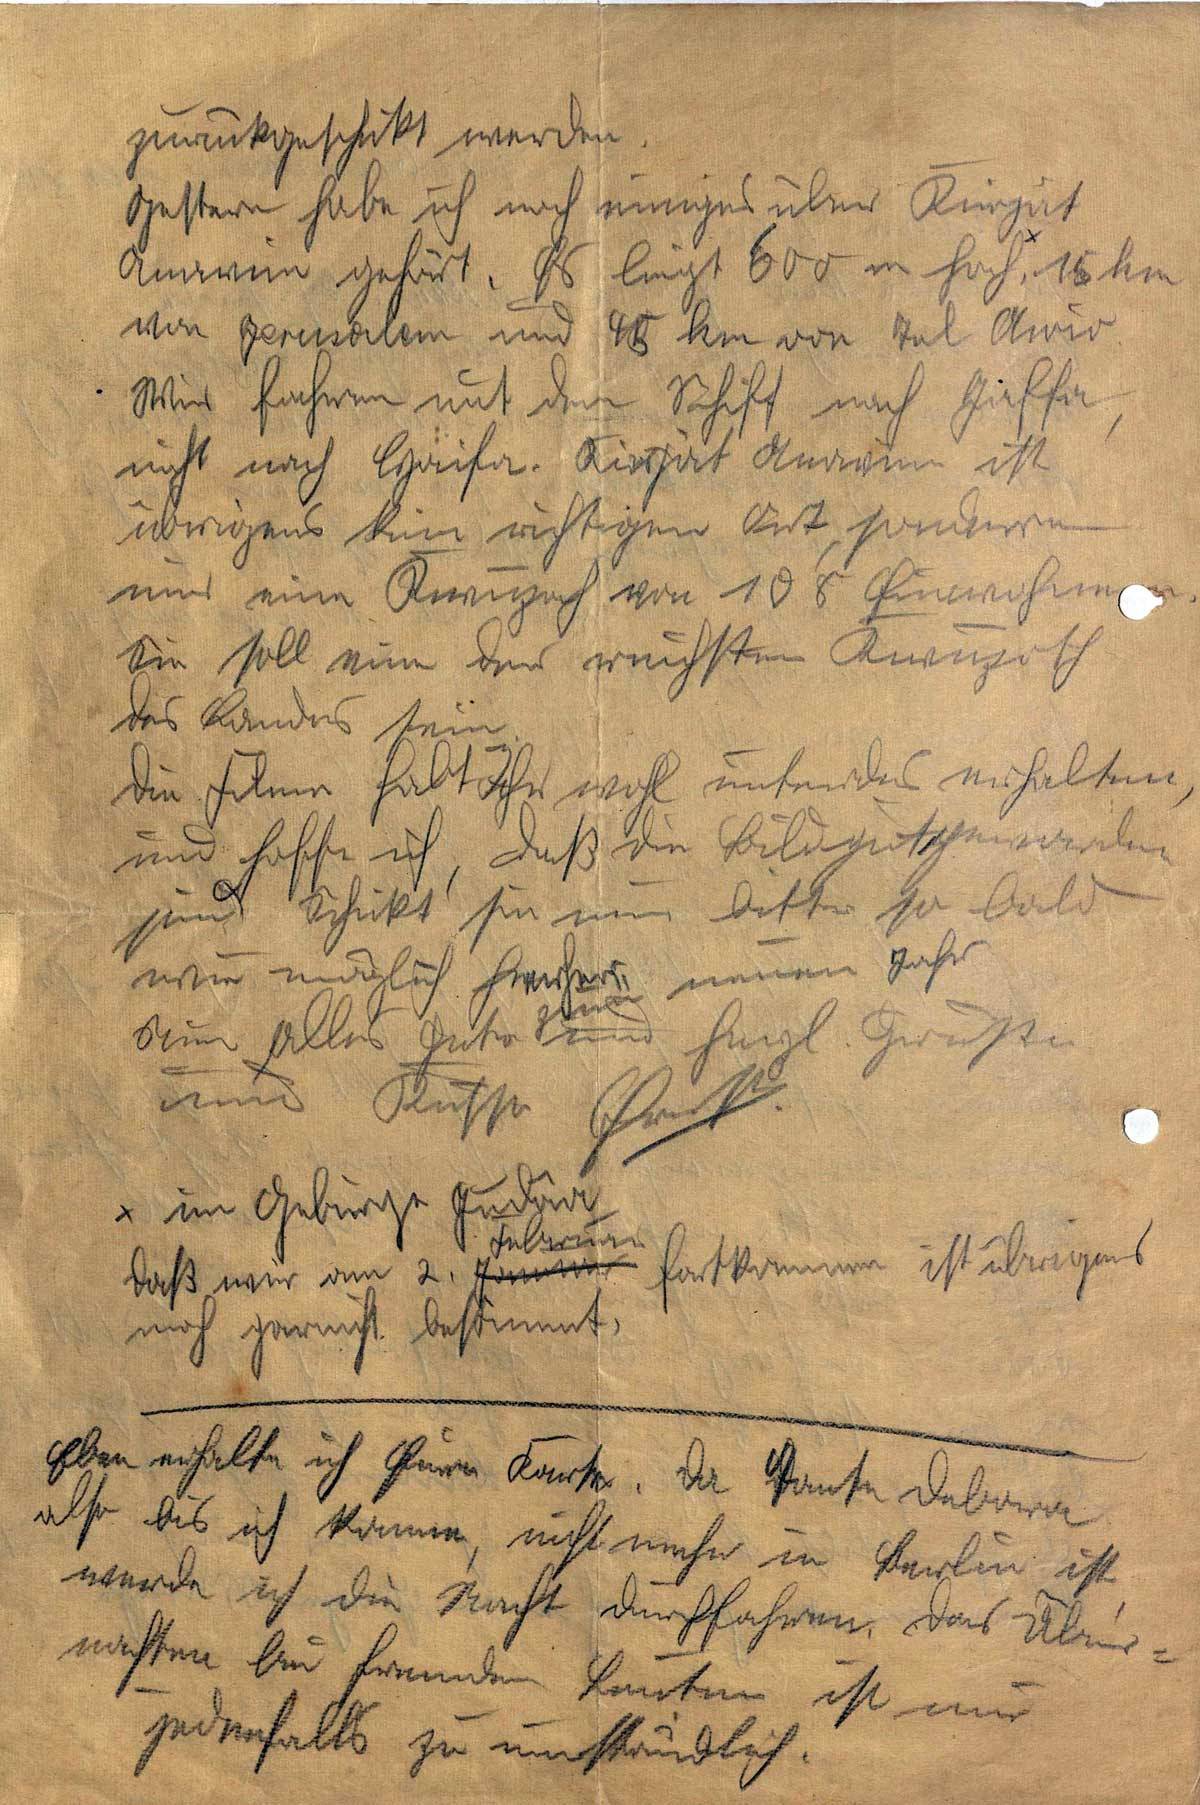 zurückgeschikt werden.
Gestern habe ich noch einiges über Kirjat
Anavim gehört. Es liegt 600 m hoch,x 15 km
von Jerusalem und 45 km von Tel Awiw.
Wir fahren mit dem Schiff nach Jaffa,
nicht nach Chaifa. Kirjat Anavim ist
übrigens kein richtigen Ort, sondern
nur eine Kwuzah von 108 Einwohnern.
Sie soll eine der reichsten Kwuzoth
des Landes sein.
Die Filme habt Ihr wohl unterdes erhalten,
und hoffe ich, daß die Bilder gut geworden
sind. Schikt sie nun bitte so bald
wie möglich hierher.
Nun alles Gute zum neuen Jahr
und herzl. Grüße
und Küsse Ernst.
x im Gebirge Judäa
daß wir am 2. Januar Februar fortkommen ist übrigens
noch garnicht bestimmt.
Eben erhalte ich Eure Karte. Da Tante Debora
also bis ich komme, nicht mehr in Berlin ist
werde ich die Nacht durchfahren. Das Über=
nachten bei fremden Leuten ist mir
jedenfalls zu umständlich.